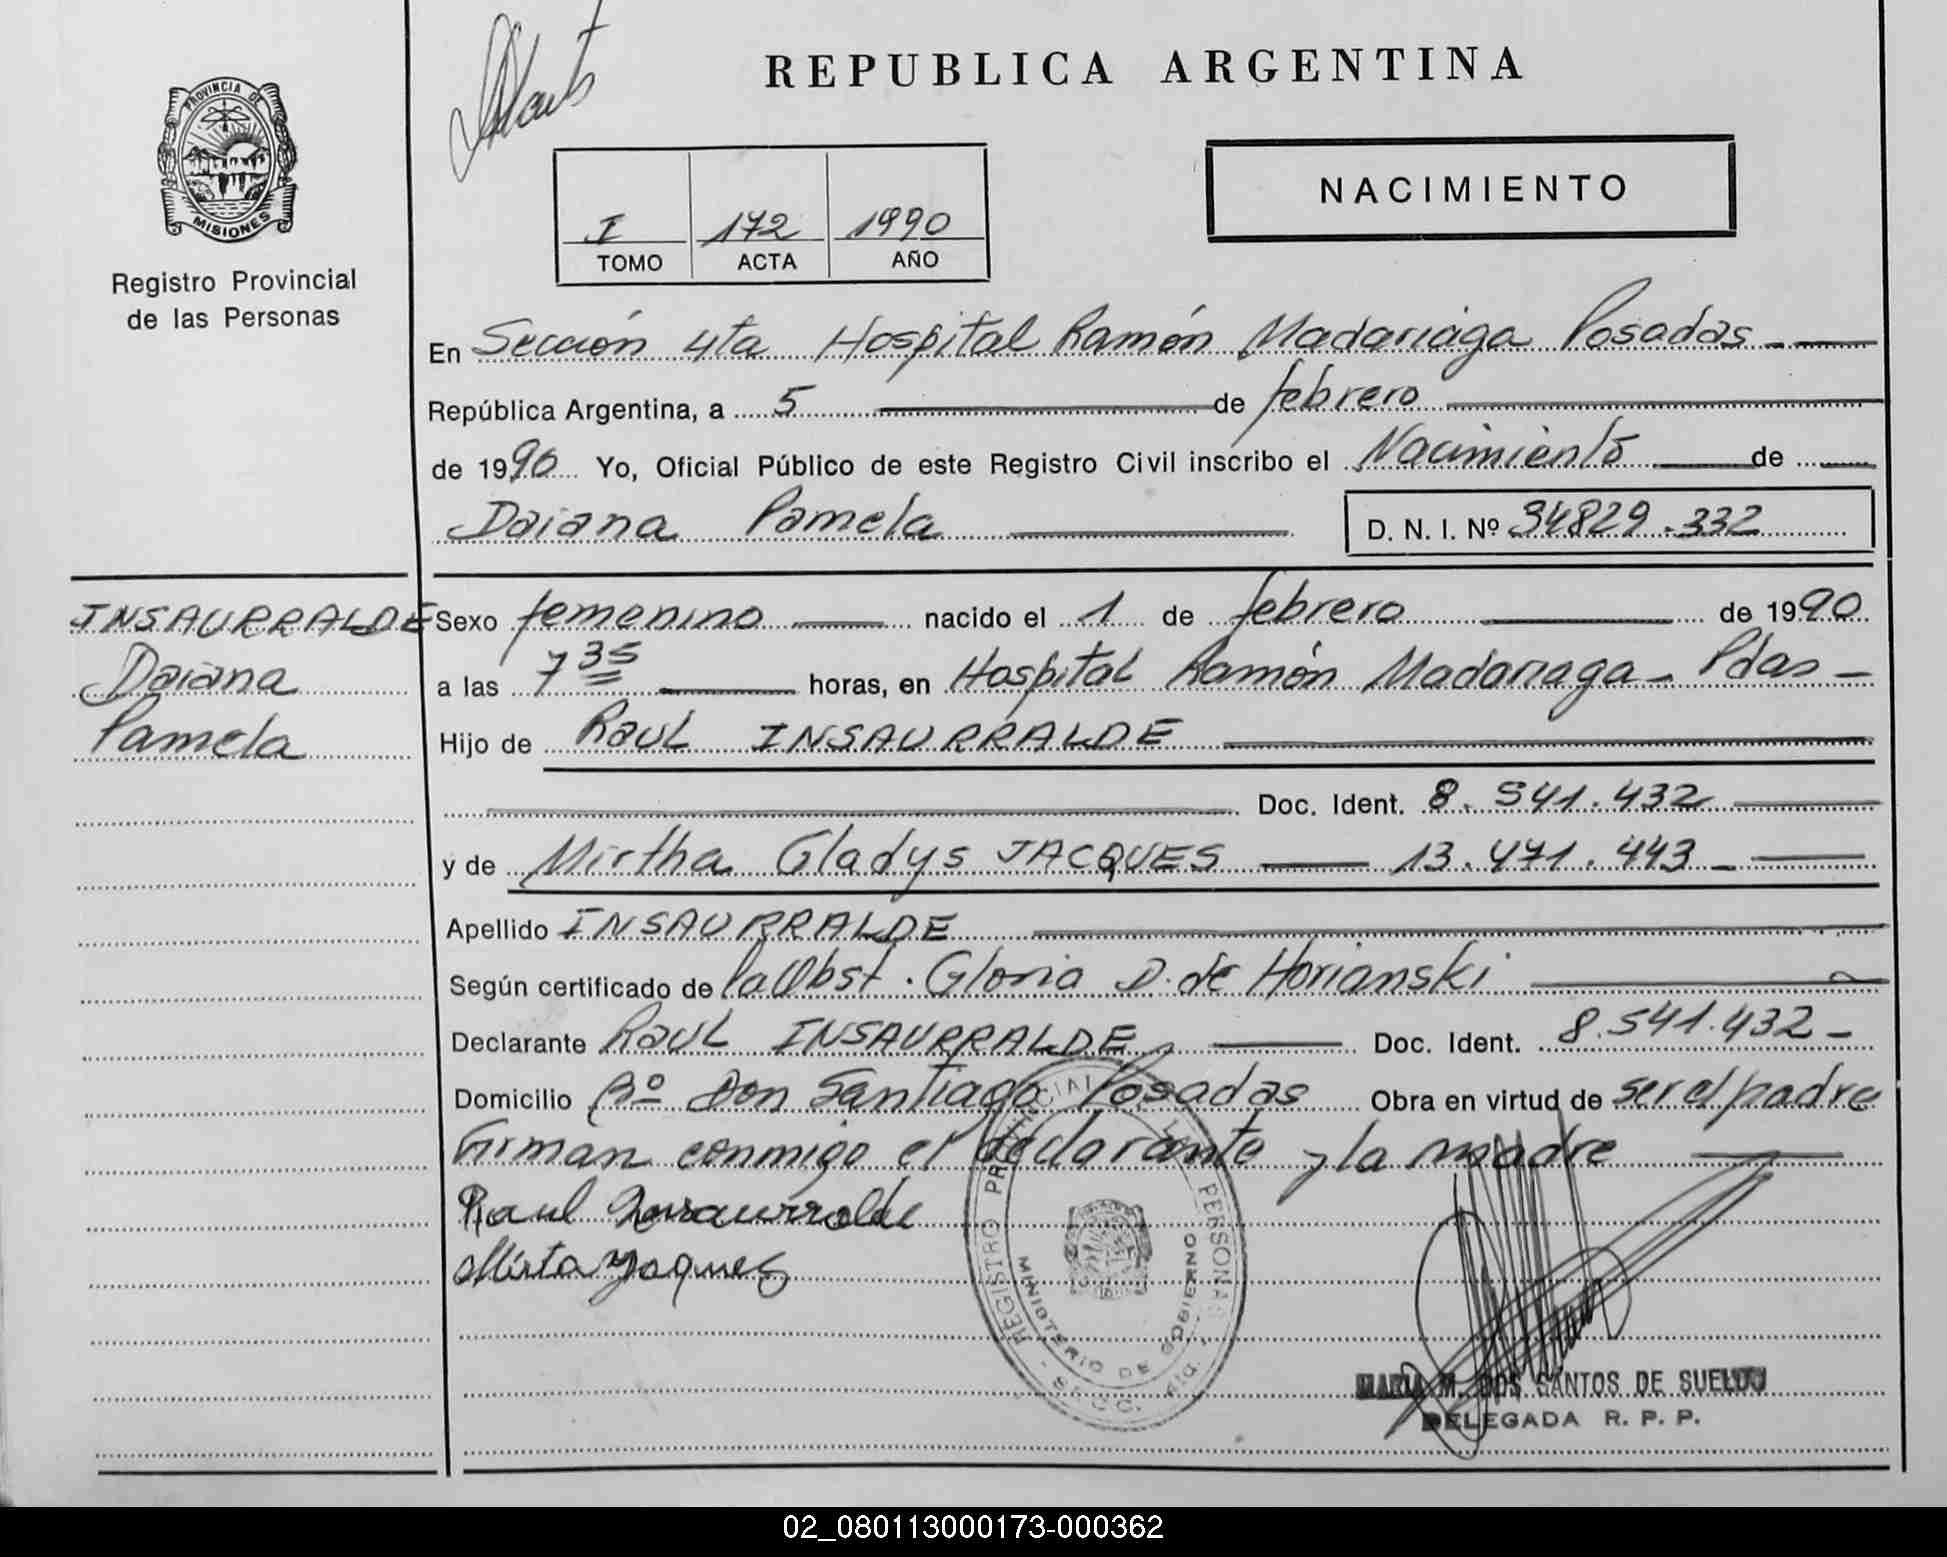 PROVINCIA DE
MISIONES
Registro Provincial
de las Personas
REPUBLICA ARGENTINA
NACIMIENTO
I 172 1990
TOMO ACTA AÑO
En Sección 4ta Hospital Ramón Madariaga Posadas
República Argentina, a 5 de febrero
de 1990 Yo, Oficial Público de este Registro Civil inscribo el Nacimiento de
Daiana Pamela D. N. I. Nº 34829.332
INSAURRALDE
Daiana
Pamela
Sexo femenino nacido el 1 de febrero de 1990
a las 7 35 horas, en Hospital Ramón Madariaga - Pdas -
Hijo de Raul INSAURRALDE
Doc. Ident. 8.541.432
y de Mirtha Gladys JACQUES 13.471.443 -
Apellido INSAURRALDE
Según certificado de la Obst. Gloria D. de Horianski
Declarante Raul INSAURRALDE Doc. Ident. 8.541.432 -
Domicilio Bº Don Santiago Posadas Obra en virtud de ser el padre
Firman conmigo el declarante y la madre
Raul Insaurralde
Mirta Jaques
REGISTRO PROVINCIAL PERSONAS
MINISTERIO DE GOBIERNO
MARIA M. DOS SANTOS DE SUELDO
DELEGADA R. P. P.
02_080113000173-000362